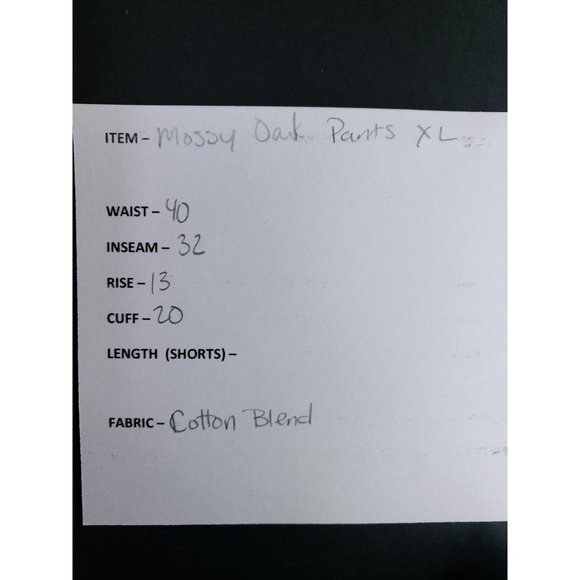 ITEM – Mossy Oak Pants XL
WAIST – 40
INSEAM – 32
RISE – 13
CUFF – 20
LENGTH (SHORTS) –
FABRIC – Cotton Blend